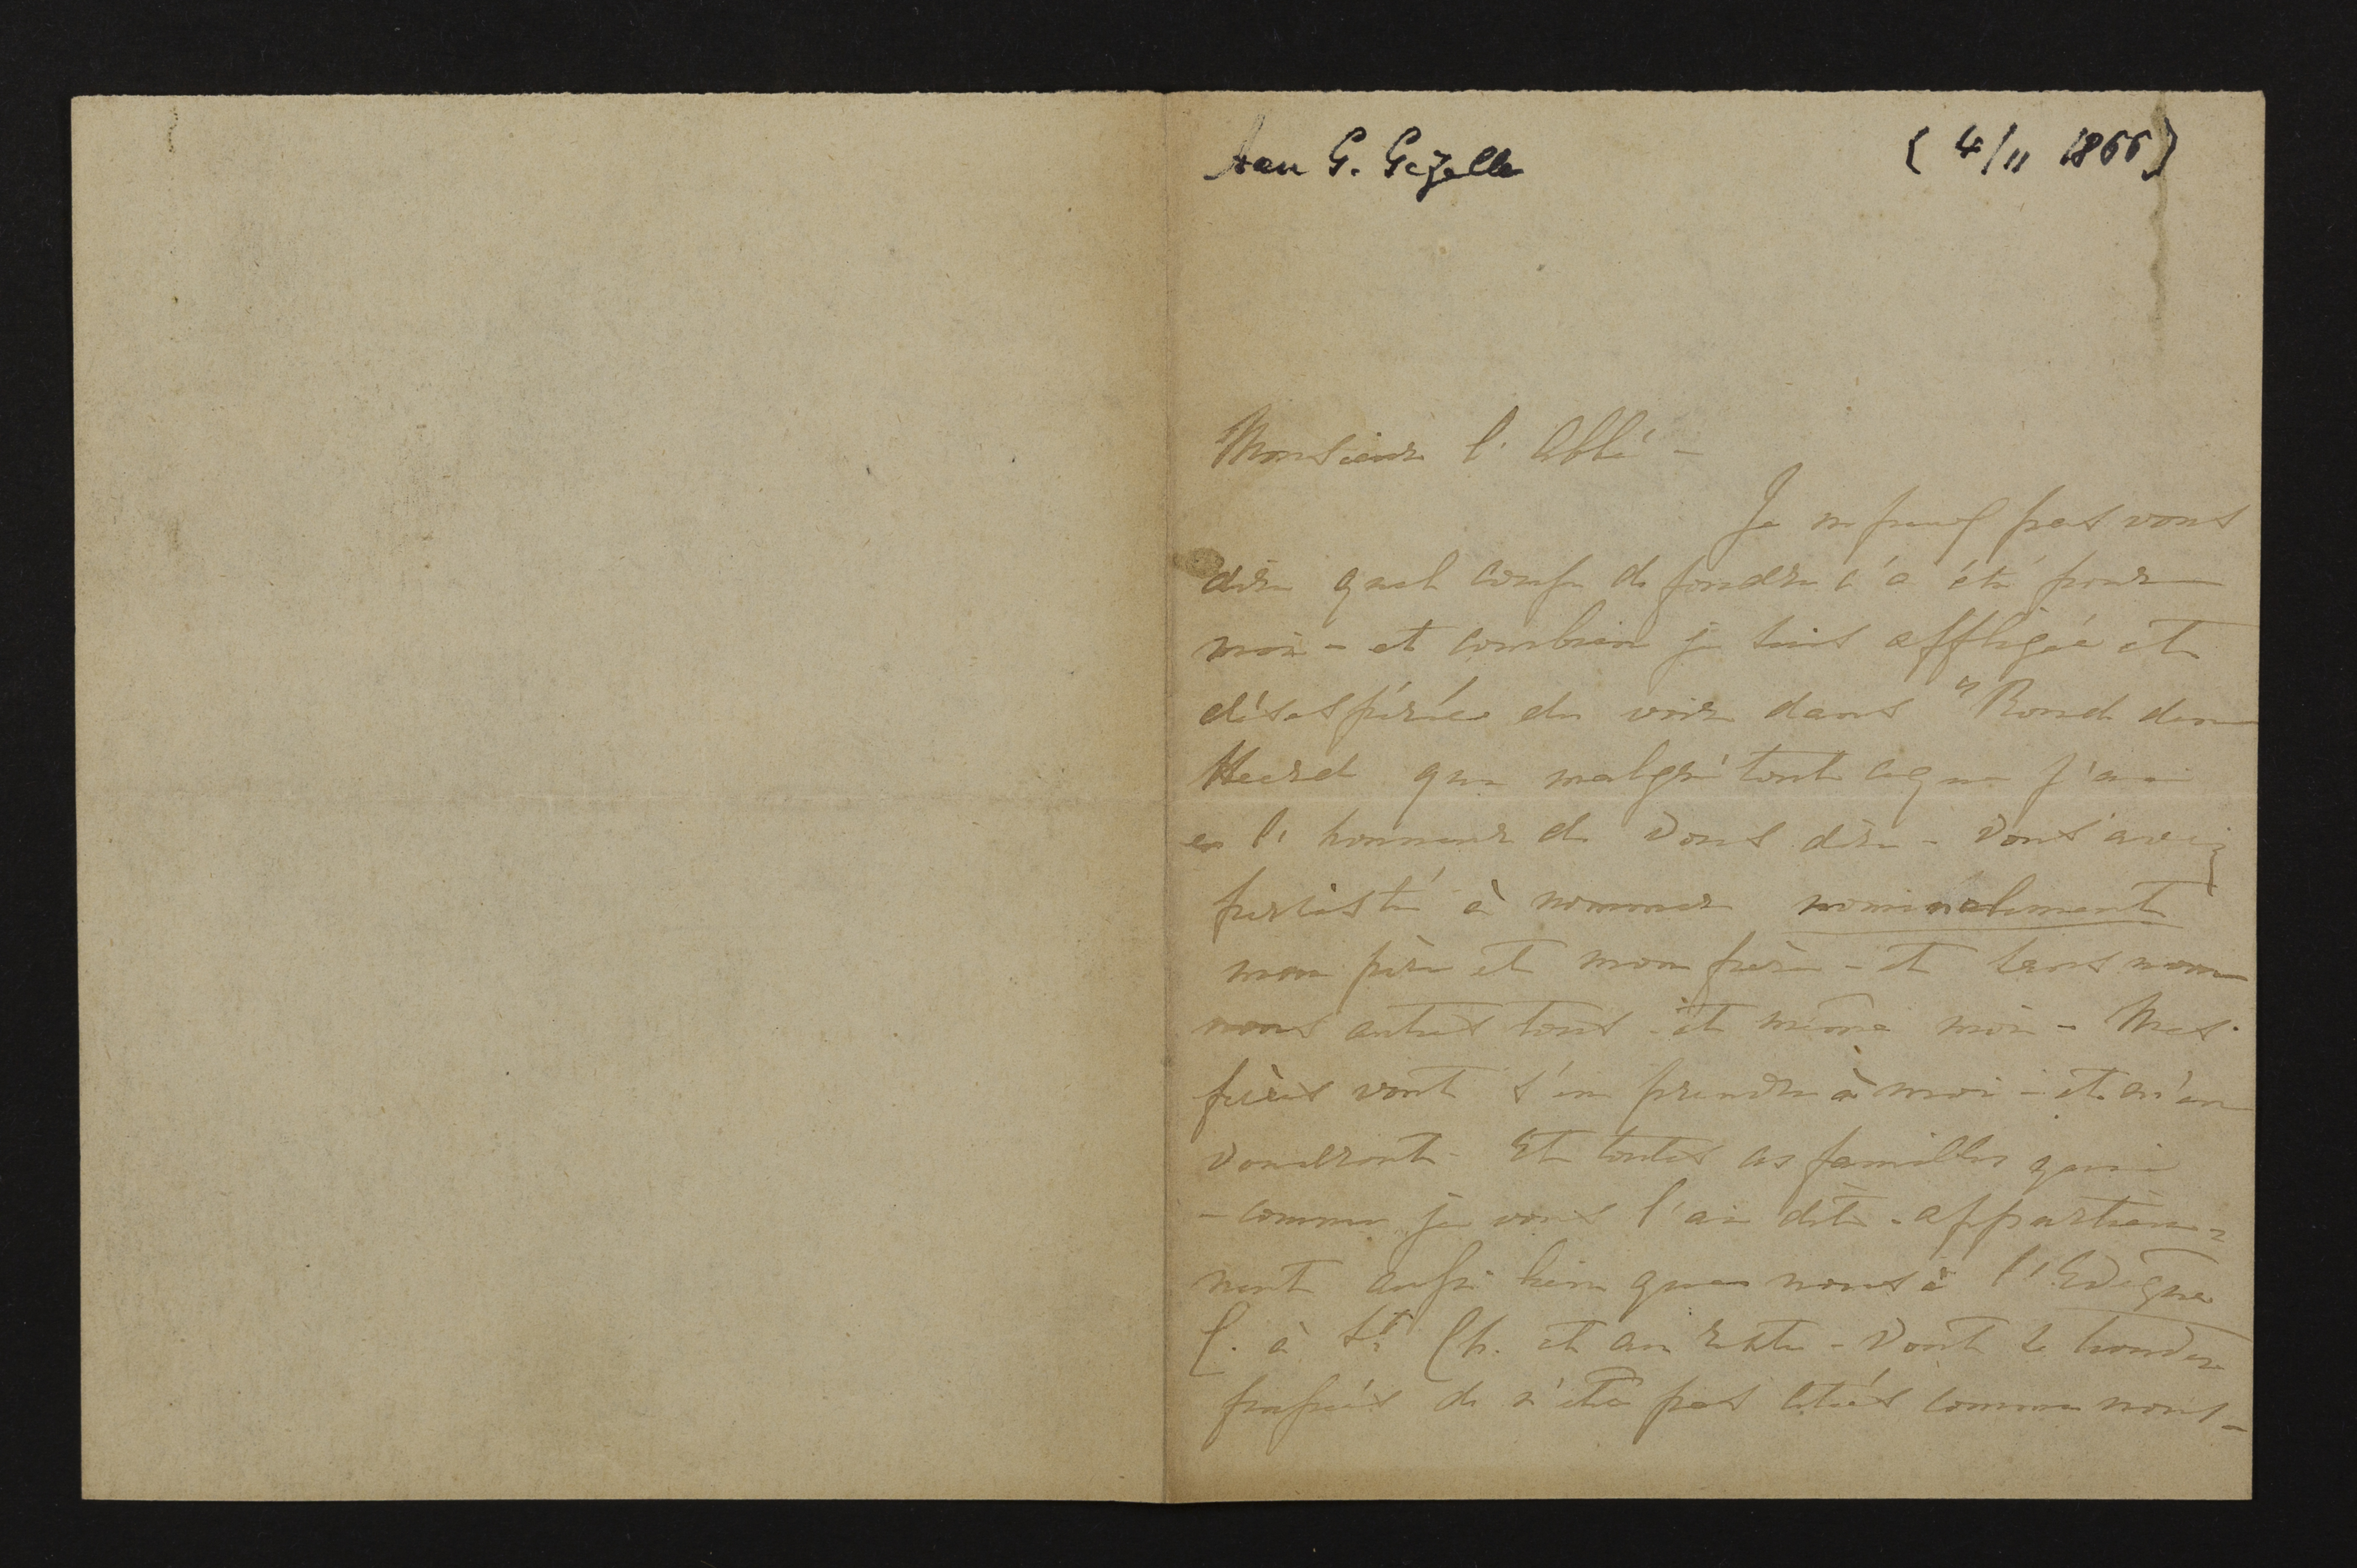 Aan G. Gezelle (4/11 1866)
Monsieur l'Abbé -
Je ne puis pas vous
dire quel coup de foudre ç'a été pour
moi - et combien je suis affligée et
désespérée de voir dans "Rond den
Heerd que malgré tout ce que j'ai
eu l'honneur de Vous dire - Vous avez
persisté à nommer nominalement
mon père et mon frère - et sans nom
nous autres tous - et même moi - Mes
frères vont s'en prendre à moi - et m'en
voudront - Et toutes ces familles qui
- comme je vous l'ai dit - appartien-
nent aussi bien que nous à l'Evêque
C. à St Ch. et au reste - Vont se trouver
froissés de n'être pas cités comme nous -